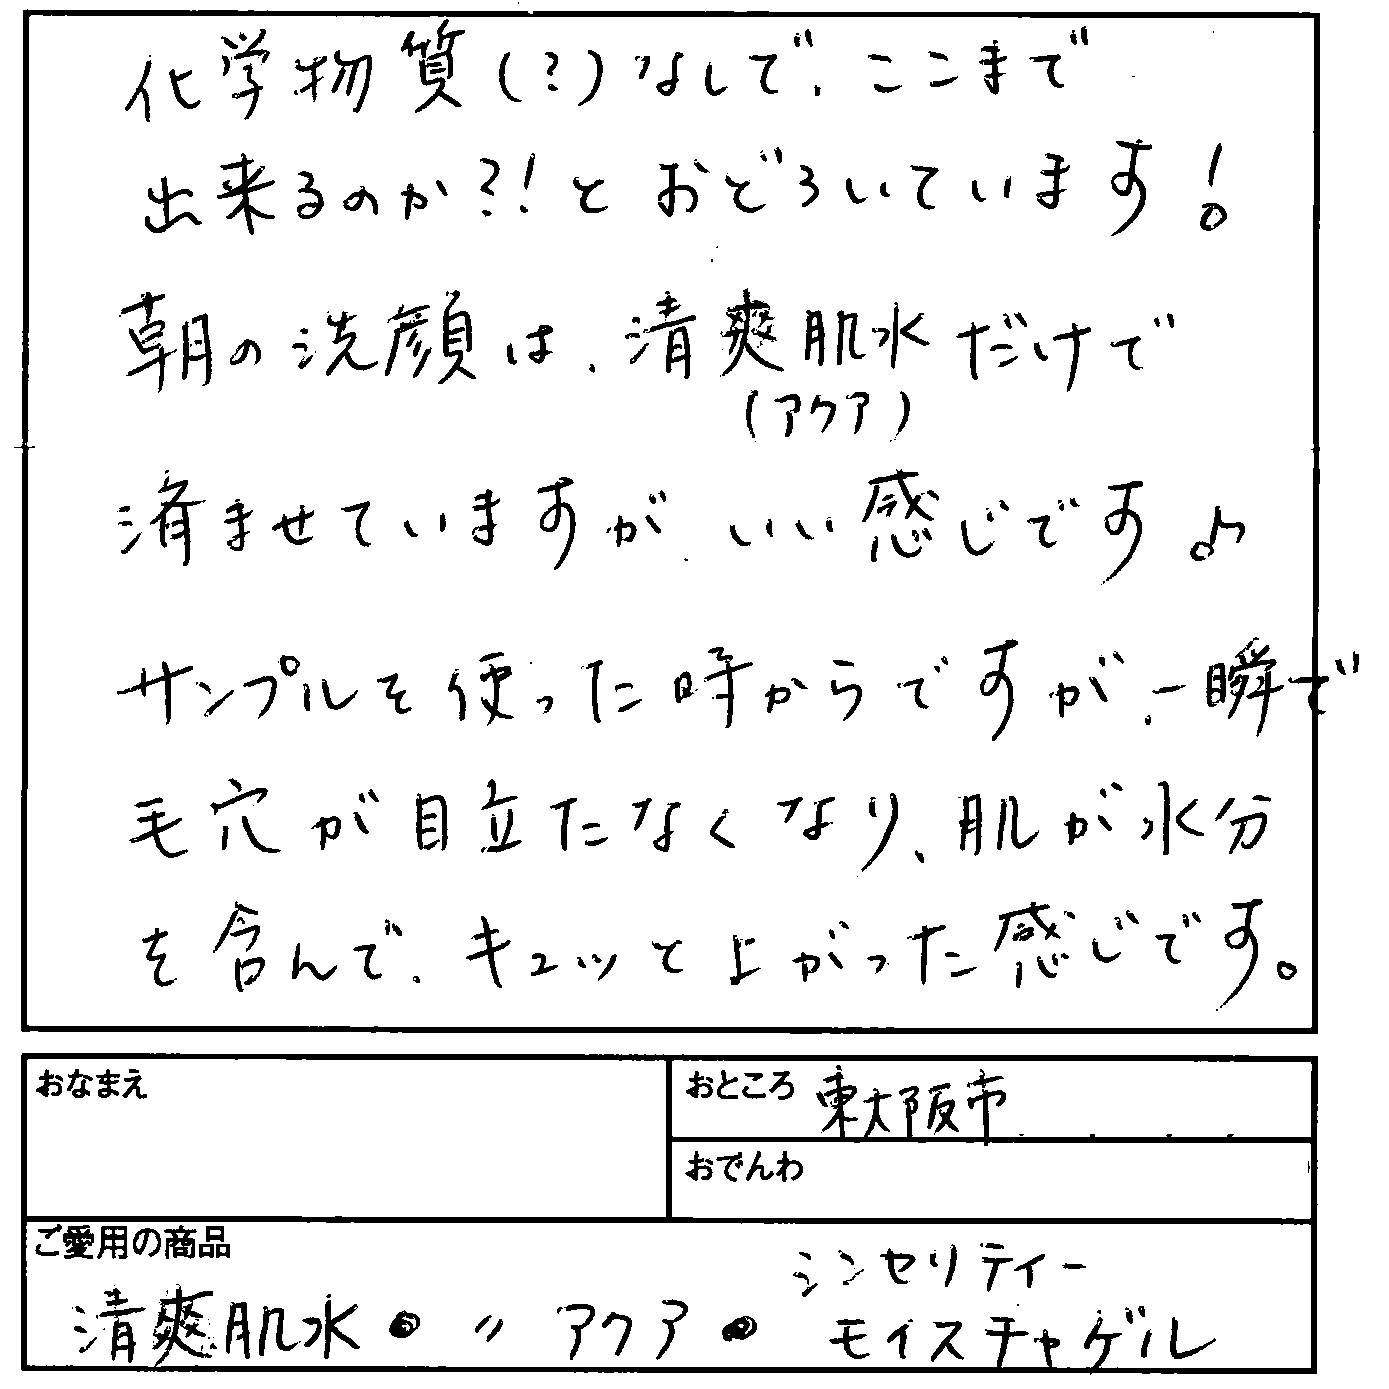 化学物質(?)なしで、ここまで
出来るのか?!とおどろいています!
朝の洗顔は、清爽肌水だけで
(アクア)
済ませていますが、いい感じです♪
サンプルを使った時からですが、一瞬で
毛穴が目立たなくなり、肌が水分
を含んで、キュッと上がった感じです。
おなまえ
おところ 東大阪市
おでんわ
ご愛用の商品
シンセリティー
清爽肌水●〃アクア●モイスチャゲル